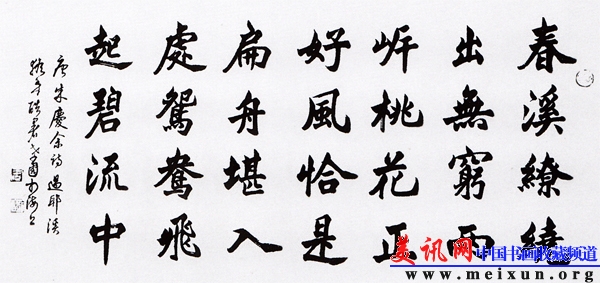 春溪繚繞
出無窮兩
岸桃花正
好風恰是
扁舟堪入
處鴛鴦飛
起碧流中
唐朱慶余詩過耶溪
美讯网
中国书画收藏频道
www.meixun.org